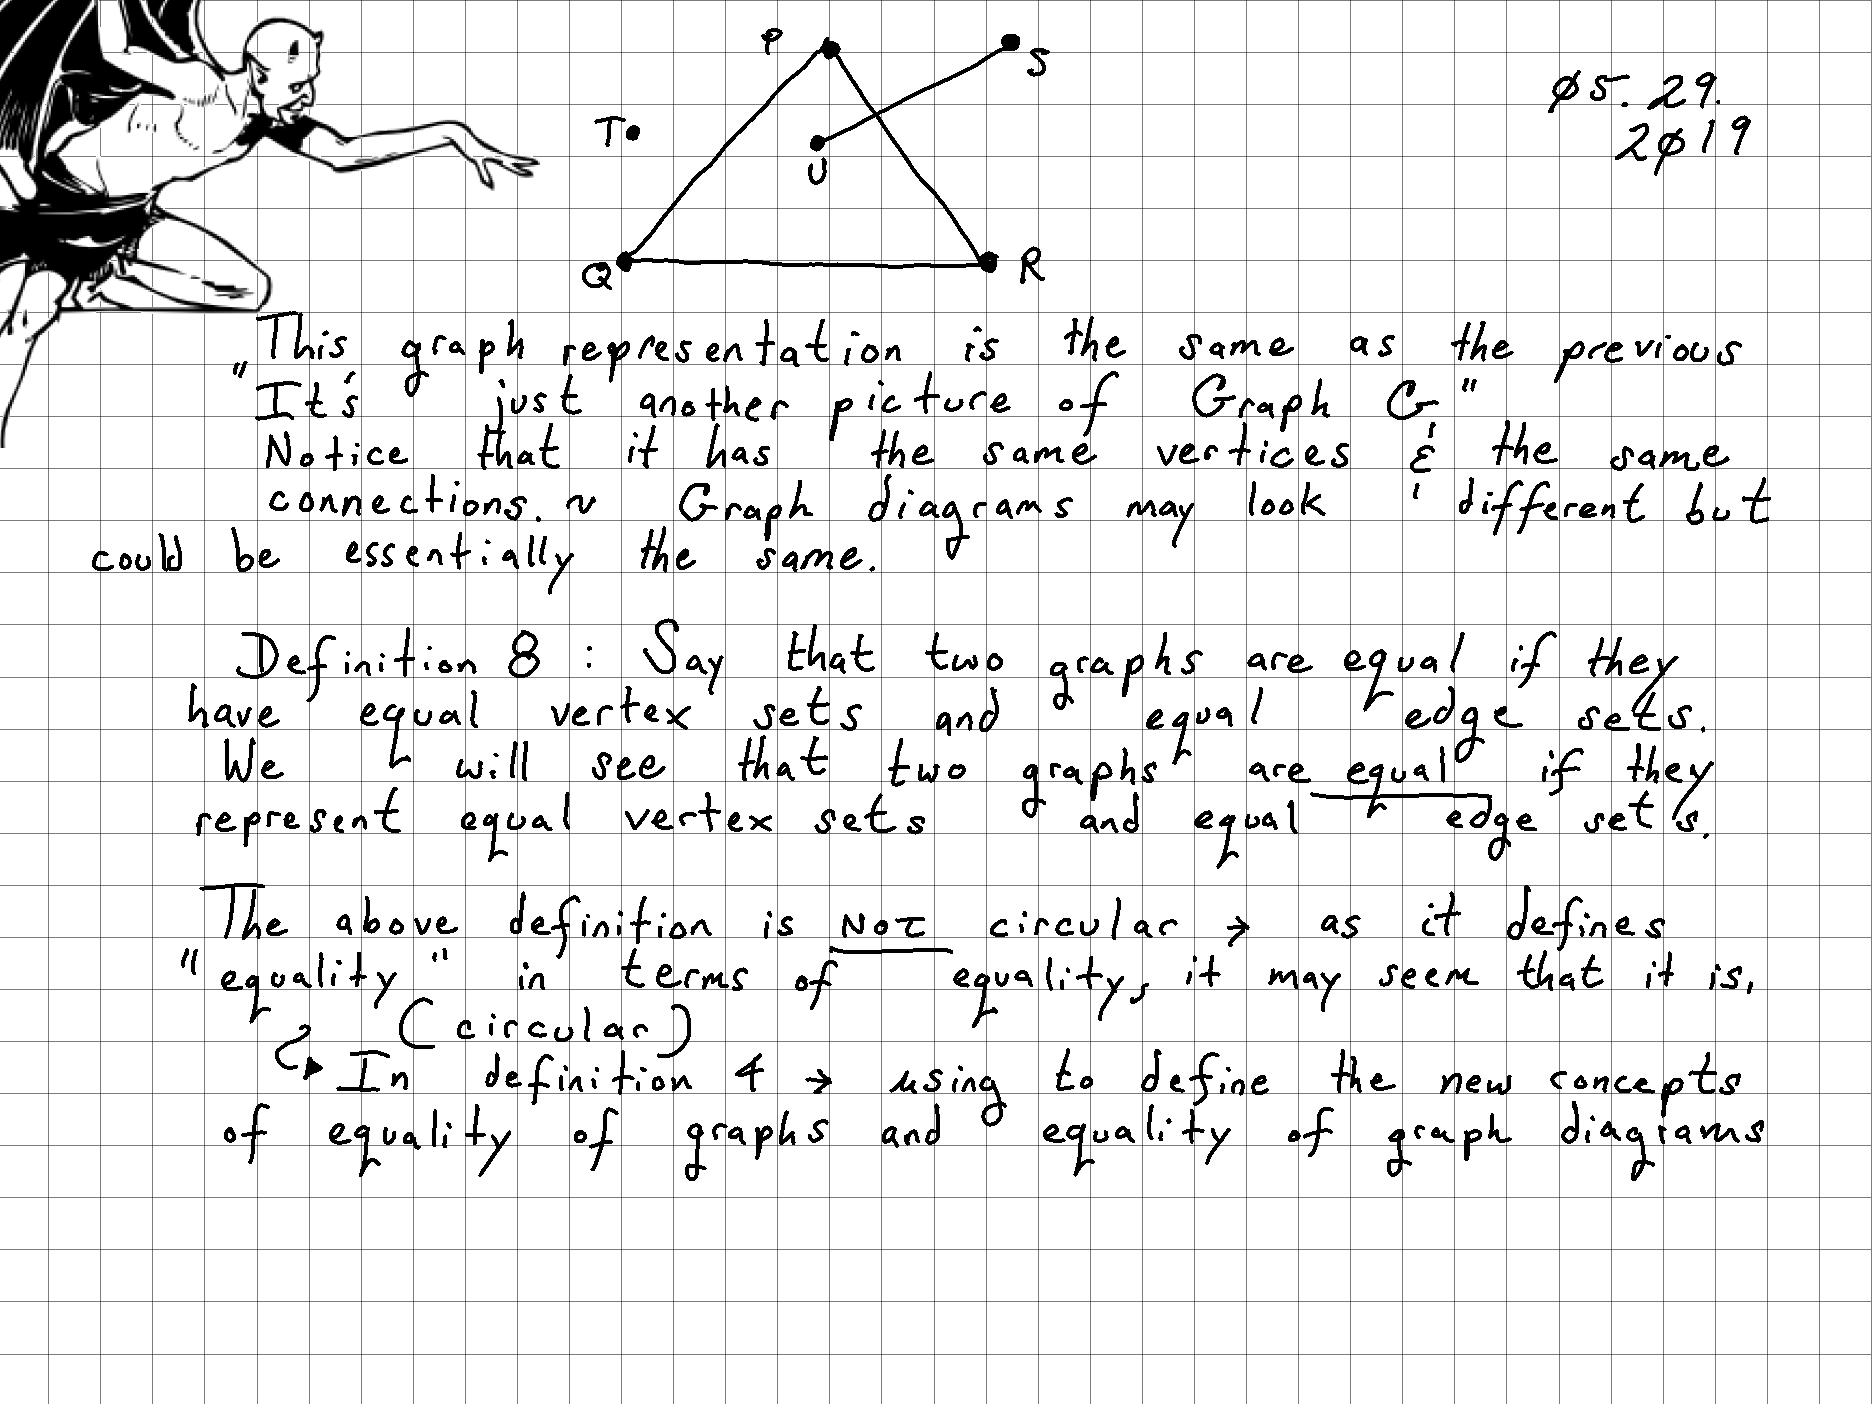 P
S
ø5. 29.
2ø19
T
U
Q
R
This graph representation is the same as the previous
"It's just another picture of Graph G"
Notice that it has the same vertices & the same
connections. ~ Graph diagrams may look different but
could be essentially the same.
Definition 8 : Say that two graphs are equal if they
have equal vertex sets and equal edge sets.
We will see that two graphs are equal if they
represent equal vertex sets and equal edge sets.
The above definition is NOT circular → as it defines
"equality" in terms of equality, it may seem that it is,
(circular)
In definition 4 → using to define the new concepts
of equality of graphs and equality of graph diagrams